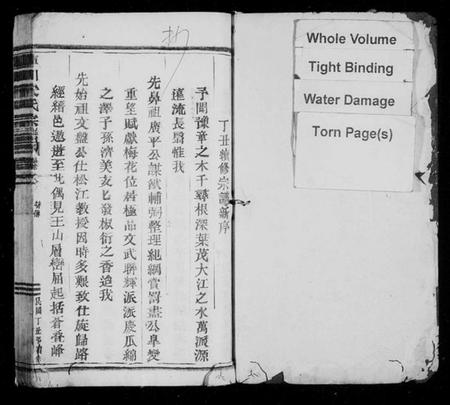 丁丑續修宗譜新序
予聞豫章之木千尋根深葉茂大江之水萬派源
遠流長譬惟我
先鼻祖廣平公謀猷輔弼整理紀綱賞罰盡公阜變
重望賦獻梅花位居極品文武聯輝派派慶瓜綿
之澤子孫濟美支匕發椒衍之香迨我
先始祖文盤公仕松江教授因時多艱致仕旋歸路
經稽邑遨遊至此偶見王山層巒屆起括蒼眷峰
Whole Volume
Tight Binding
Water Damage
Torn Page(s)